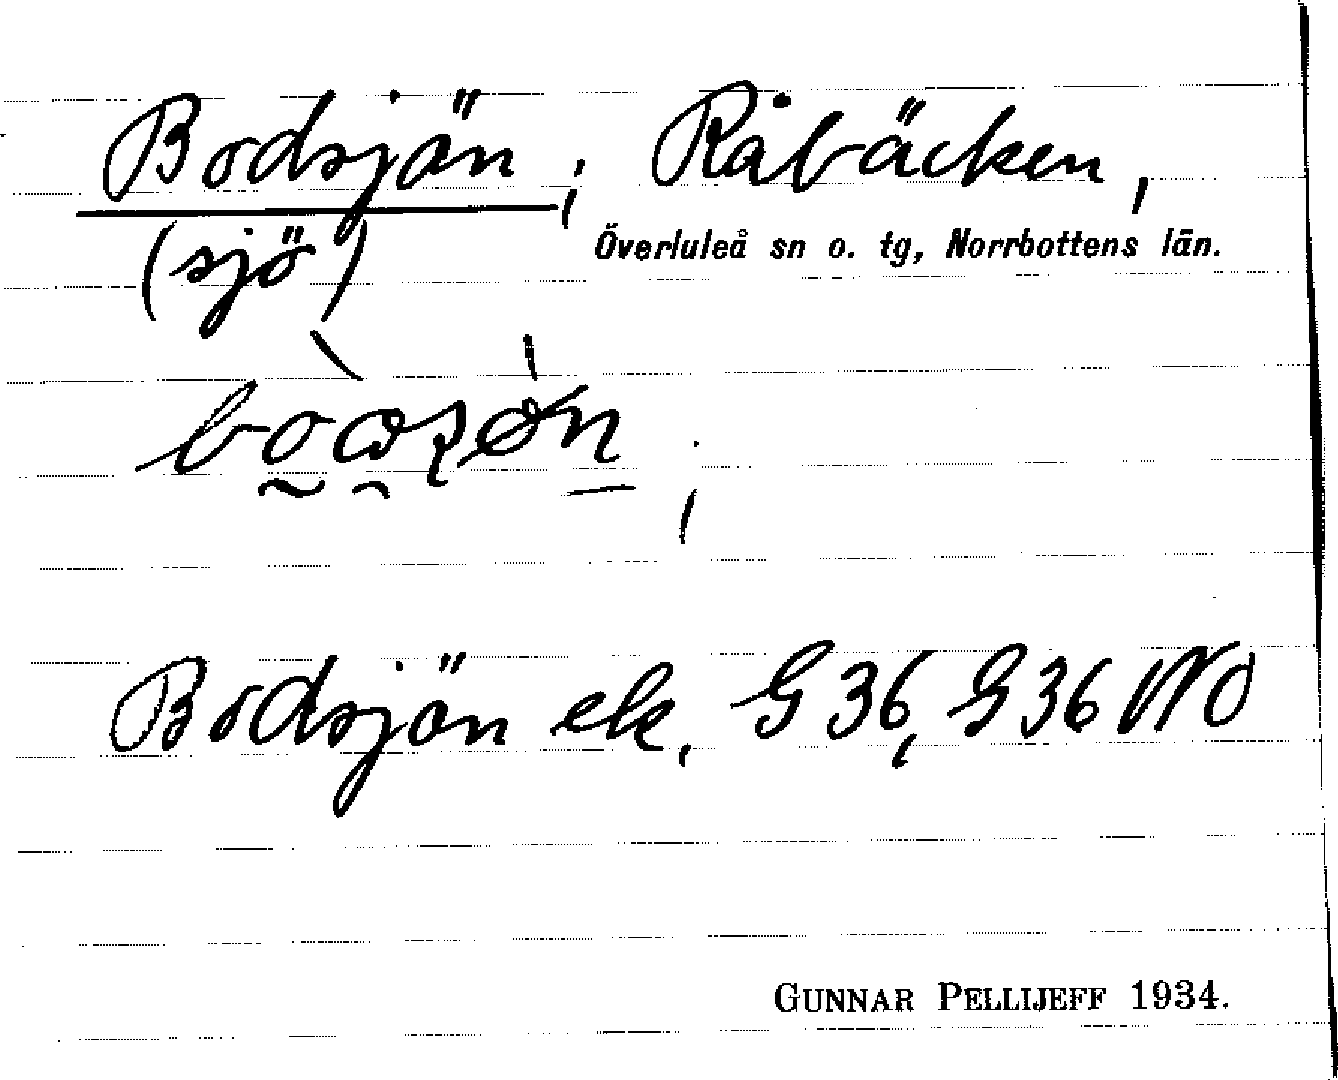 Bodsjön; Råbäcken,
(sjö) Överluleå sn o. tg, Norrbottens län.
Bodsjön ek, G 36, G 36 NO
GUNNAR PELLIJEFF 1934.